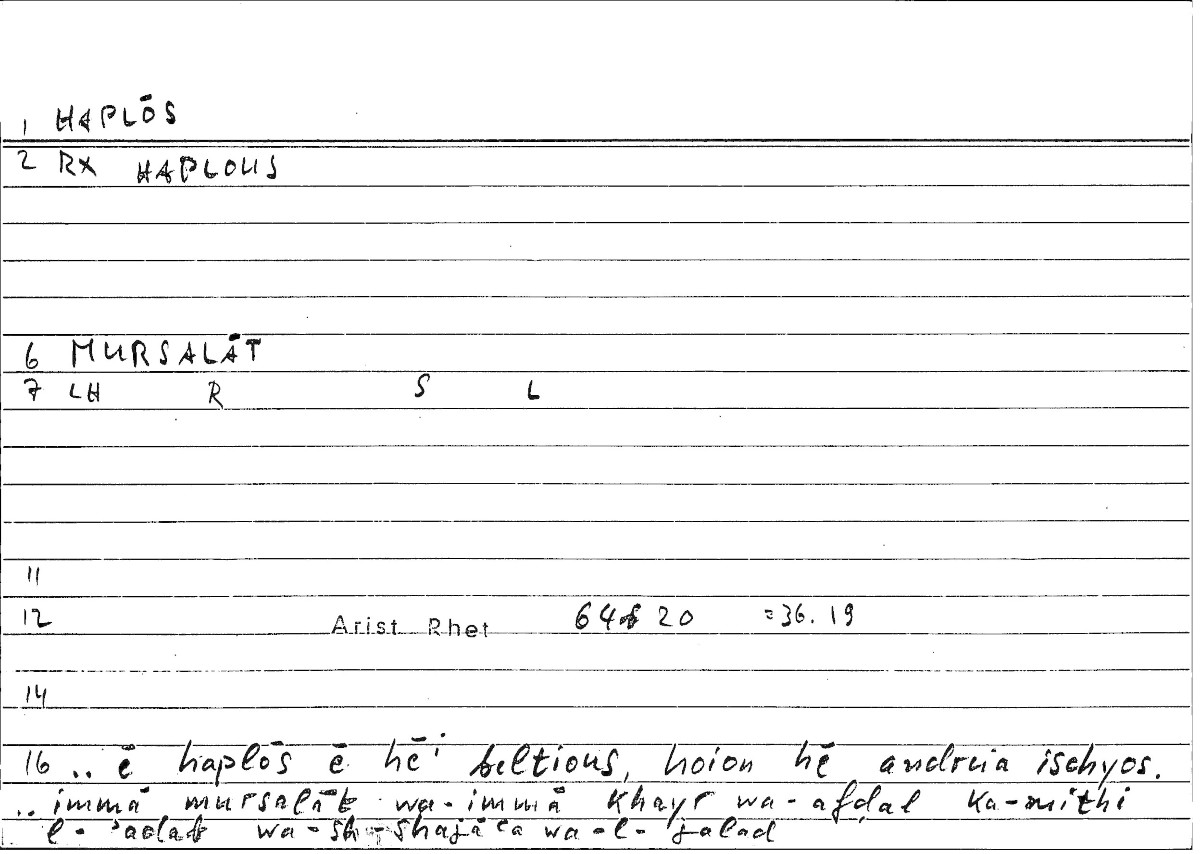 1 HAPLŌS
2 RX HAPLOUS
6 MURSALĀT
7 LH R S L
11
12 Arist Rhet 64 20 =36.19
14
16 .. ē haplōs ē hēi beltious, hoion hē andreia ischyos.
.. immā mursalāt wa-immā khayr wa-afḍal ka-mithi
l- wa-sh-shajāʿa wa-l-jalad